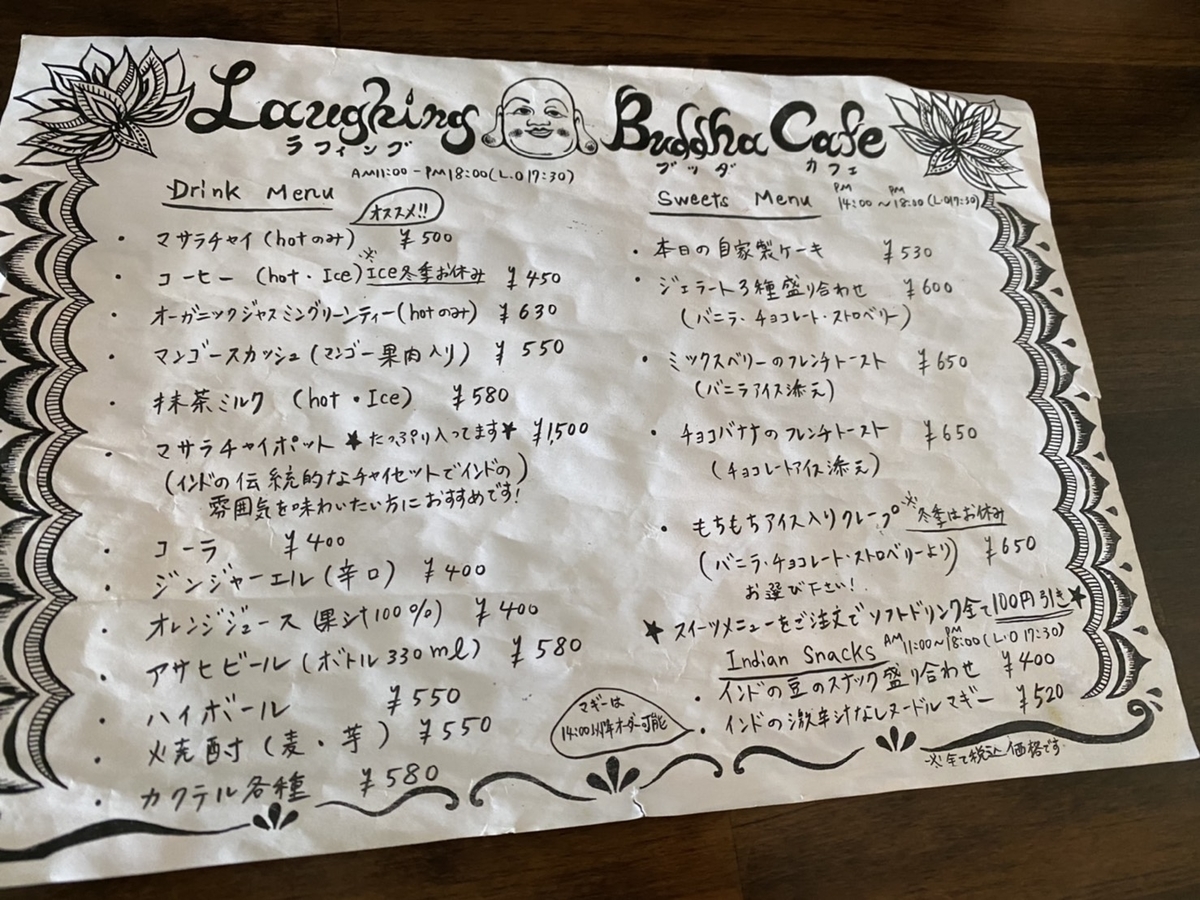 Laughing Buddha Cafe
ラフィング ブッダ カフェ
AM11:00-PM18:00(L.O17:30)
Drink Menu
オススメ!!
・マサラチャイ(hotのみ) ¥500
・コーヒー (hot・Ice)※Ice冬季お休み ¥450
・オーガニックジャスミングリーンティー(hotのみ) ¥630
・マンゴースカッシュ(マンゴー果肉入り) ¥550
・抹茶ミルク (hot・Ice) ¥580
・マサラチャイポット ★たっぷり入ってます★ ¥1,500
(インドの伝統的なチャイセットでインドの)
雰囲気を味わいたい方におすすめです!
・コーラ ¥400
・ジンジャーエール(辛口) ¥400
・オレンジジュース(果汁100%) ¥400
・アサヒビール(ボトル330ml) ¥580
・ハイボール ¥550
・焼酎(麦・芋) ¥550
・カクテル各種 ¥580
Sweets Menu PM14:00~PM18:00(L.O17:30)
・本日の自家製ケーキ ¥530
・ジェラート3種盛り合わせ ¥600
(バニラ・チョコレート・ストロベリー)
・ミックスベリーのフレンチトースト ¥650
(バニラアイス添え)
・チョコバナナのフレンチトースト ¥650
(チョコレートアイス添え)
・もちもちアイス入りクレープ ※冬季はお休み
(バニラ・チョコレート・ストロベリーより) ¥650
お選び下さい!
★スイーツメニューをご注文でソフトドリンク全て100円引き★
Indian Snacks AM11:00~PM18:00(L.O17:30)
・インドの豆のスナック盛り合わせ ¥400
・インドの激辛汁なしヌードルマギー ¥520
マギーは
14:00以降オーダー可能
※全て税込価格です